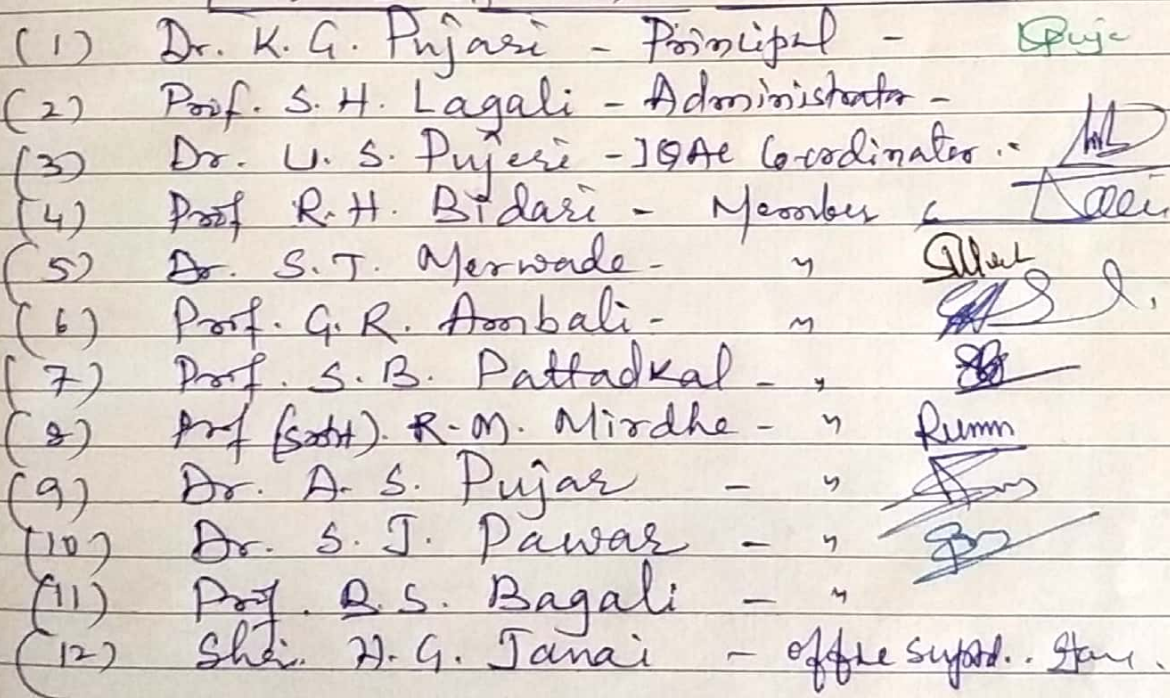 (1) Dr. K. G. Pujari - Principal -
(2) Prof. S. H. Lagali - Administrator -
(3) Dr. U. S. Pujeri - IQAC Co-ordinator :-
(4) Prof R. H. Bidari - Member
(5) Dr. S. T. Merwade - "
(6) Prof. G. R. Ambali - "
(7) Prof. S. B. Pattadkal - "
(8) Prof (Smt). R. M. Mirdhe - " Rumm
(9) Dr. A. S. Pujar - "
(10) Dr. S. J. Pawar - "
(11) Prof. B. S. Bagali - "
(12) Shri. H. G. Janai - office Supdt..